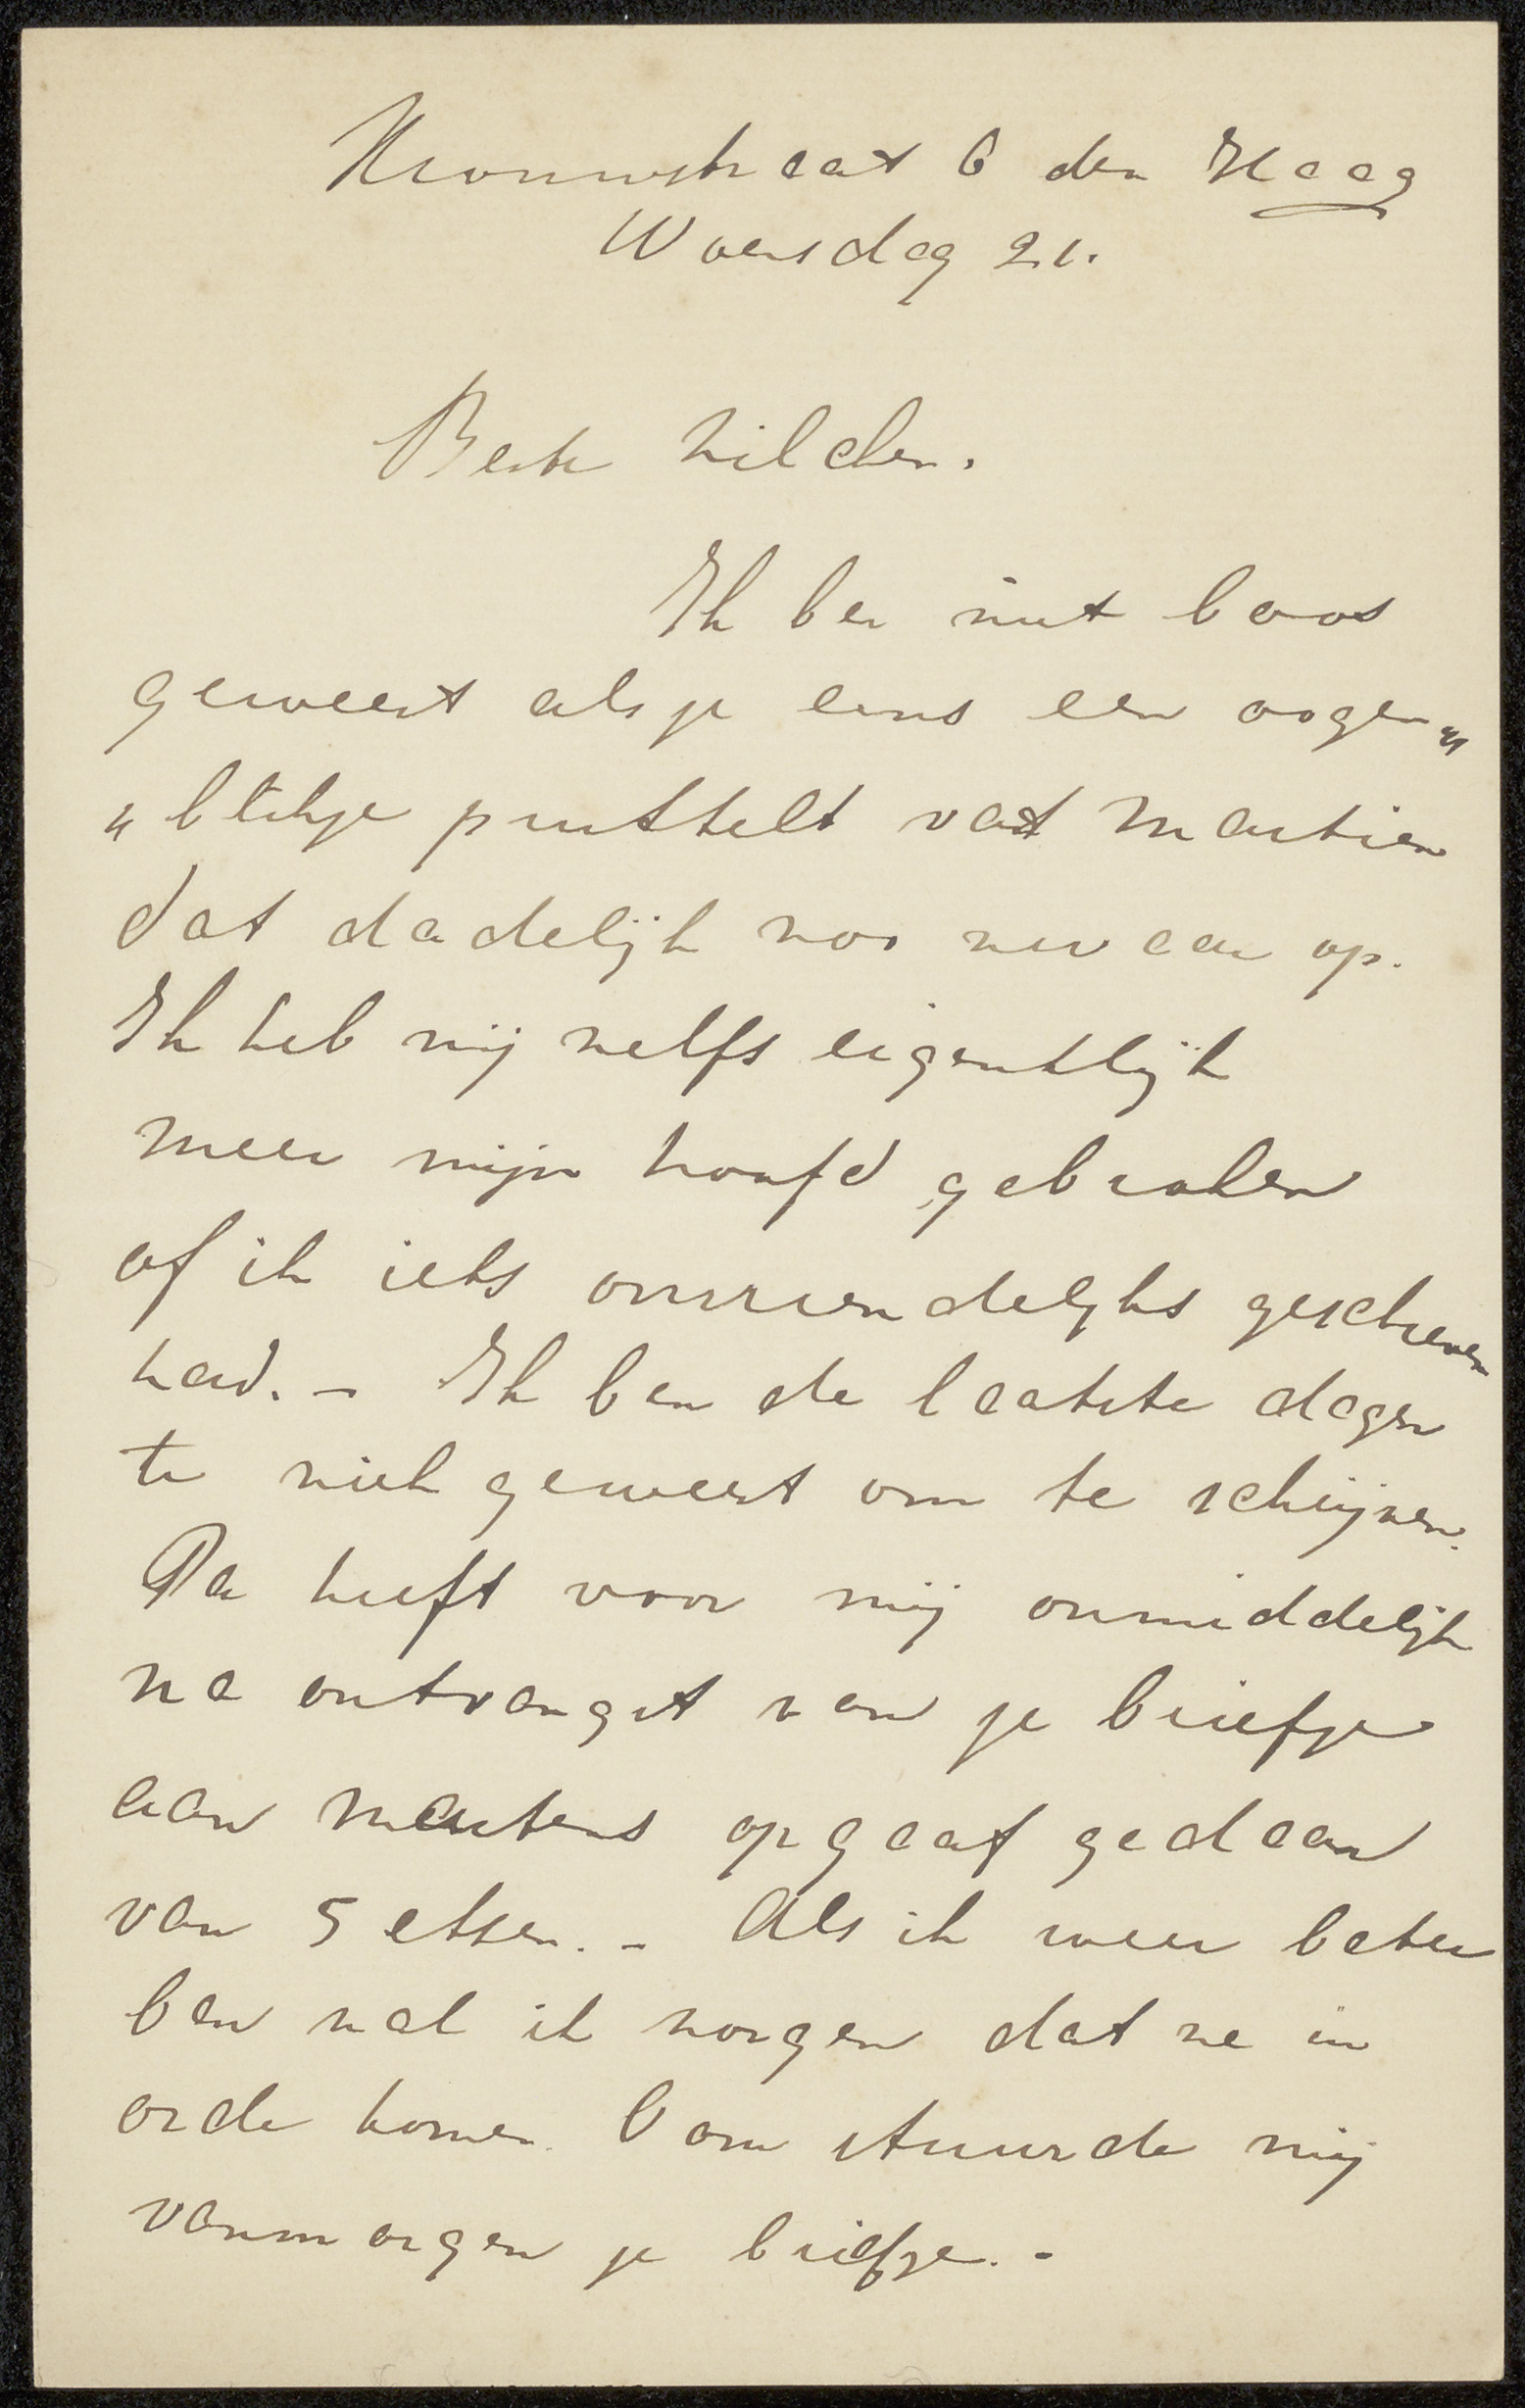 Kronwstraat 6 den Haag
Woensdag 21.
Beste Zilcken.
Ik ben niet boos
geweest als je eens een oogen„
„blikje pruttelt vat Martien
dat dadelijk zoo zwaar op.
Ik heb mij zelfs eigentlijk
meer mijn hoofd gebroken
of ik iets onvriendelijks geschreven
had. – Ik ben de laatste dagen
te ziek geweest om te schrijven.
Pa heeft voor mij onmiddelijk
na ontvangst van je briefje
aan Martens opgaaf gedaan
van 5 etsen. – Als ik weer beter
ben zal ik zorgen dat ze in
orde komen. Oom stuurde mij
vanmorgen je briefje. –